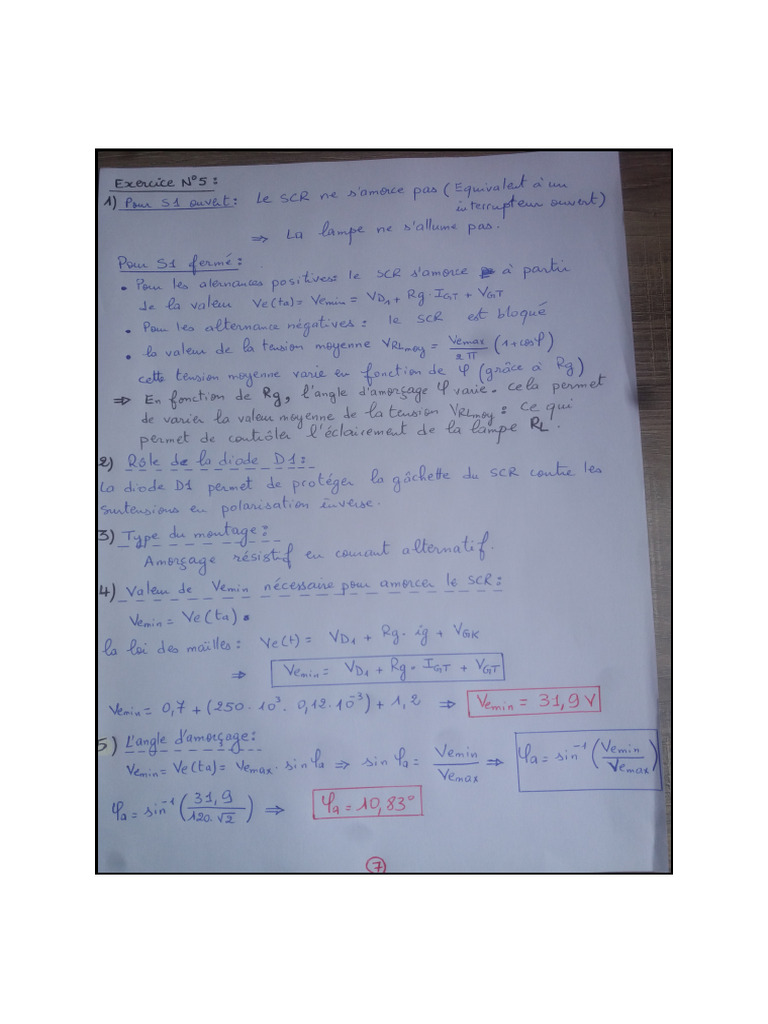 Exercice N°5:
1) Pour S1 ouvert: Le SCR ne s'amorce pas (Equivalent à un
interrupteur ouvert)
⇒ La lampe ne s'allume pas.
Pour S1 fermé:
• Pour les alernances positives: le SCR s'amorce à partir
de la valeur Ve(ta) = Vemin = VD1 + Rg. IGT + VGT
• Pour les alternance négatives: le SCR est bloqué
• la valeur de la tension moyenne VRLmoy = Vemax/2π (1+cosφ)
cette tension moyenne varie en fonction de φ (grâce à Rg)
⇒ En fonction de Rg, l'angle d'amorçage φ varie. cela permet
de varier la valeur moyenne de la tension VRLmoy: ce qui
permet de contrôler l'éclairement de la lampe RL.
2) Rôle de la diode D1:
La diode D1 permet de protéger la gâchette du SCR contre les
surtensions en polarisation inverse.
3) Type du montage:
Amorçage résistif en courant alternatif.
4) Valeur de Vemin nécessaire pour amorcer le SCR:
Vemin = Ve(ta).
la loi des mailles: Ve(t) = VD1 + Rg. ig + VGK
⇒ Vemin = VD1 + Rg. IGT + VGT
Vemin = 0,7 + (250.10³. 0,12.10⁻³) + 1,2 ⇒ Vemin = 31,9 V
5) L'angle d'amorçage:
Vemin = Ve(ta) = Vemax. sin φa ⇒ sin φa = Vemin/Vemax ⇒ φa = sin⁻¹(Vemin/Vemax)
φa = sin⁻¹(31,9/120.√2) ⇒ φa = 10,83°
7